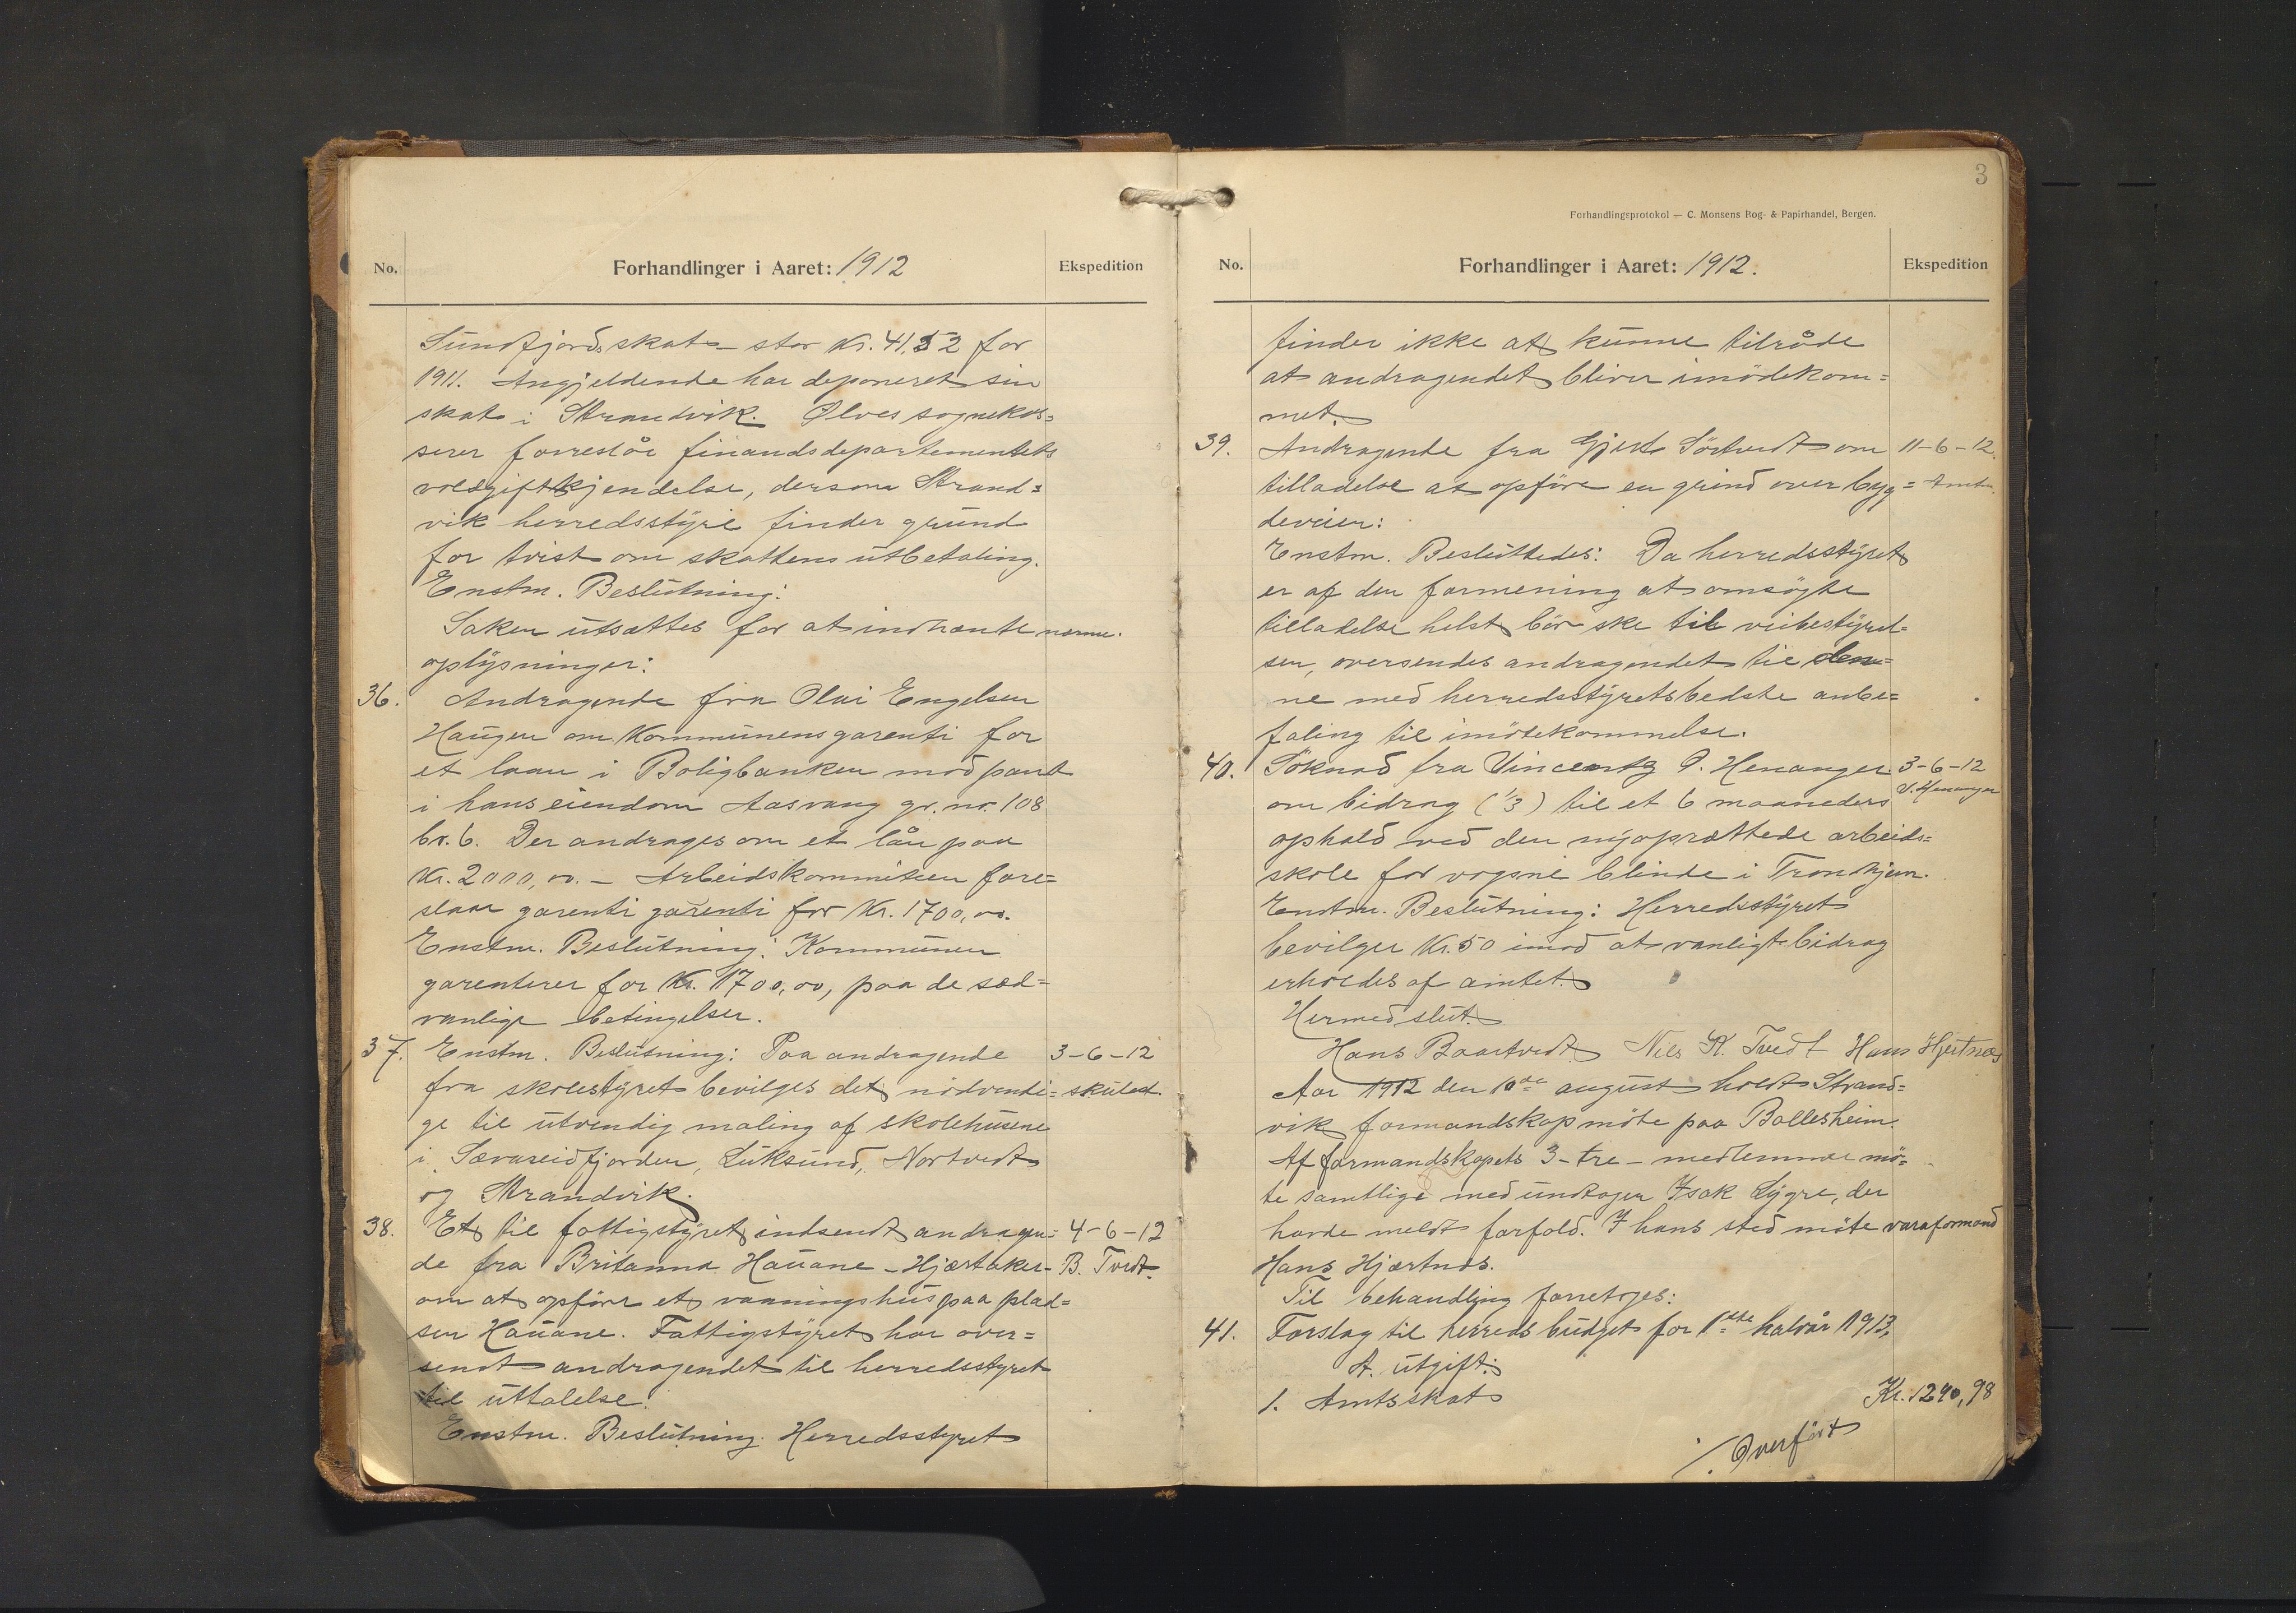 No.
Forhandlinger i Aaret: 1912
Ekspedition
Sundfjords skat - stor Kr. 41,52 for
1911. Angjeldende har deponeret sin
skat i Strandvik. Ølves sognekas=
serer foreslår finansdepartementets
voldgiftskjendelse, dersom Strand=
vik herredsstyre finder grund
for tvist om skattens utbetaling.
Enstm. Beslutning:
Saken utsættes for at indhente nærme.
oplysninger:
36. Andragende fra Olai Engelsen
Haugen om Kommunens garenti for
et laan i Boligbanken mod pant
i hans eiendom Aasvang gr. nr. 108
br. 6. Der andrages om et lån paa
Kr. 2000,00. - Arbeidskommiteen fore=
slaar garenti garenti for Kr. 1700,00.
Enstm. Beslutning: Kommunen
garenterer for Kr. 1700,00, paa de sæd=
vanlige betingelser.
37. Enstm. Beslutning: Paa andragende 3-6-12
fra skolestyret bevilges det nödvendi= skulest.
ge til utvendig maling af skolehusene
i Sævareidfjorden, Luksund, Nortvedt
og Strandvik.
38. Et til fattigstyret indsendt andragen= 4-6-12
de fra Britanna Hauane - Hjærtaker- B. Tvedt.
om at opföre et vaaningshus paa plad=
sen Hauane. Fattigstyret har over=
sendt andragendet til herredsstyret
til uttalelse.
Enstm. Beslutning. Herredsstyret
3
Forhandlingsprotokol — C. Monsens Bog- & Papirhandel, Bergen.
No.
Forhandlinger i Aaret: 1912.
Ekspedition
finder ikke at kunne tilråde
at andragendet bliver imödekom=
met.
39. Andragende fra Gjert Sörtvedt om 11-6-12.
tilladelse at opföre en grind over byg= Amtm.
deveien:
Enstm. Besluttedes: Da herredsstyret
er af den formening at omsögte
tilladelse helst bör ske til veibestyrel=
sen, oversendes andragendet til den=
ne med herredsstyrets bedste anbe=
faling til imötekommelse.
40. Söknad fra Vincentz P. Henanger 3-6-12
V. Henanger
om bidrag (1/3) til et 6 maaneders
ophold ved den nyoprættede arbeids=
skole for vogsne blinde i Trondhjem.
Enstm. Beslutning: Herredsstyret
bevilger Kr. 50 imod at vanligt bidrag
erholdes af amtet.
Hermed slut.
Hans Baartvedt Nils K. Tvedt Hans Hjertnæs
Aar 1912 den 10de august holdt Strand=
vik formandskap möte paa Bollesheim.
Af formandskapets 3 - tre - medlemmer mö=
te samtlige med undtagen Isak Lygre, der
harde meldt forfold. I hans sted möte varaformand
Hans Hjærtnæs.
Til behandling forretoges:
41. Forslag til herredsbudget for 1ste halvår 1913,
A. utgift:
1. Amtsskat Kr. 1240,98
./. Overfört